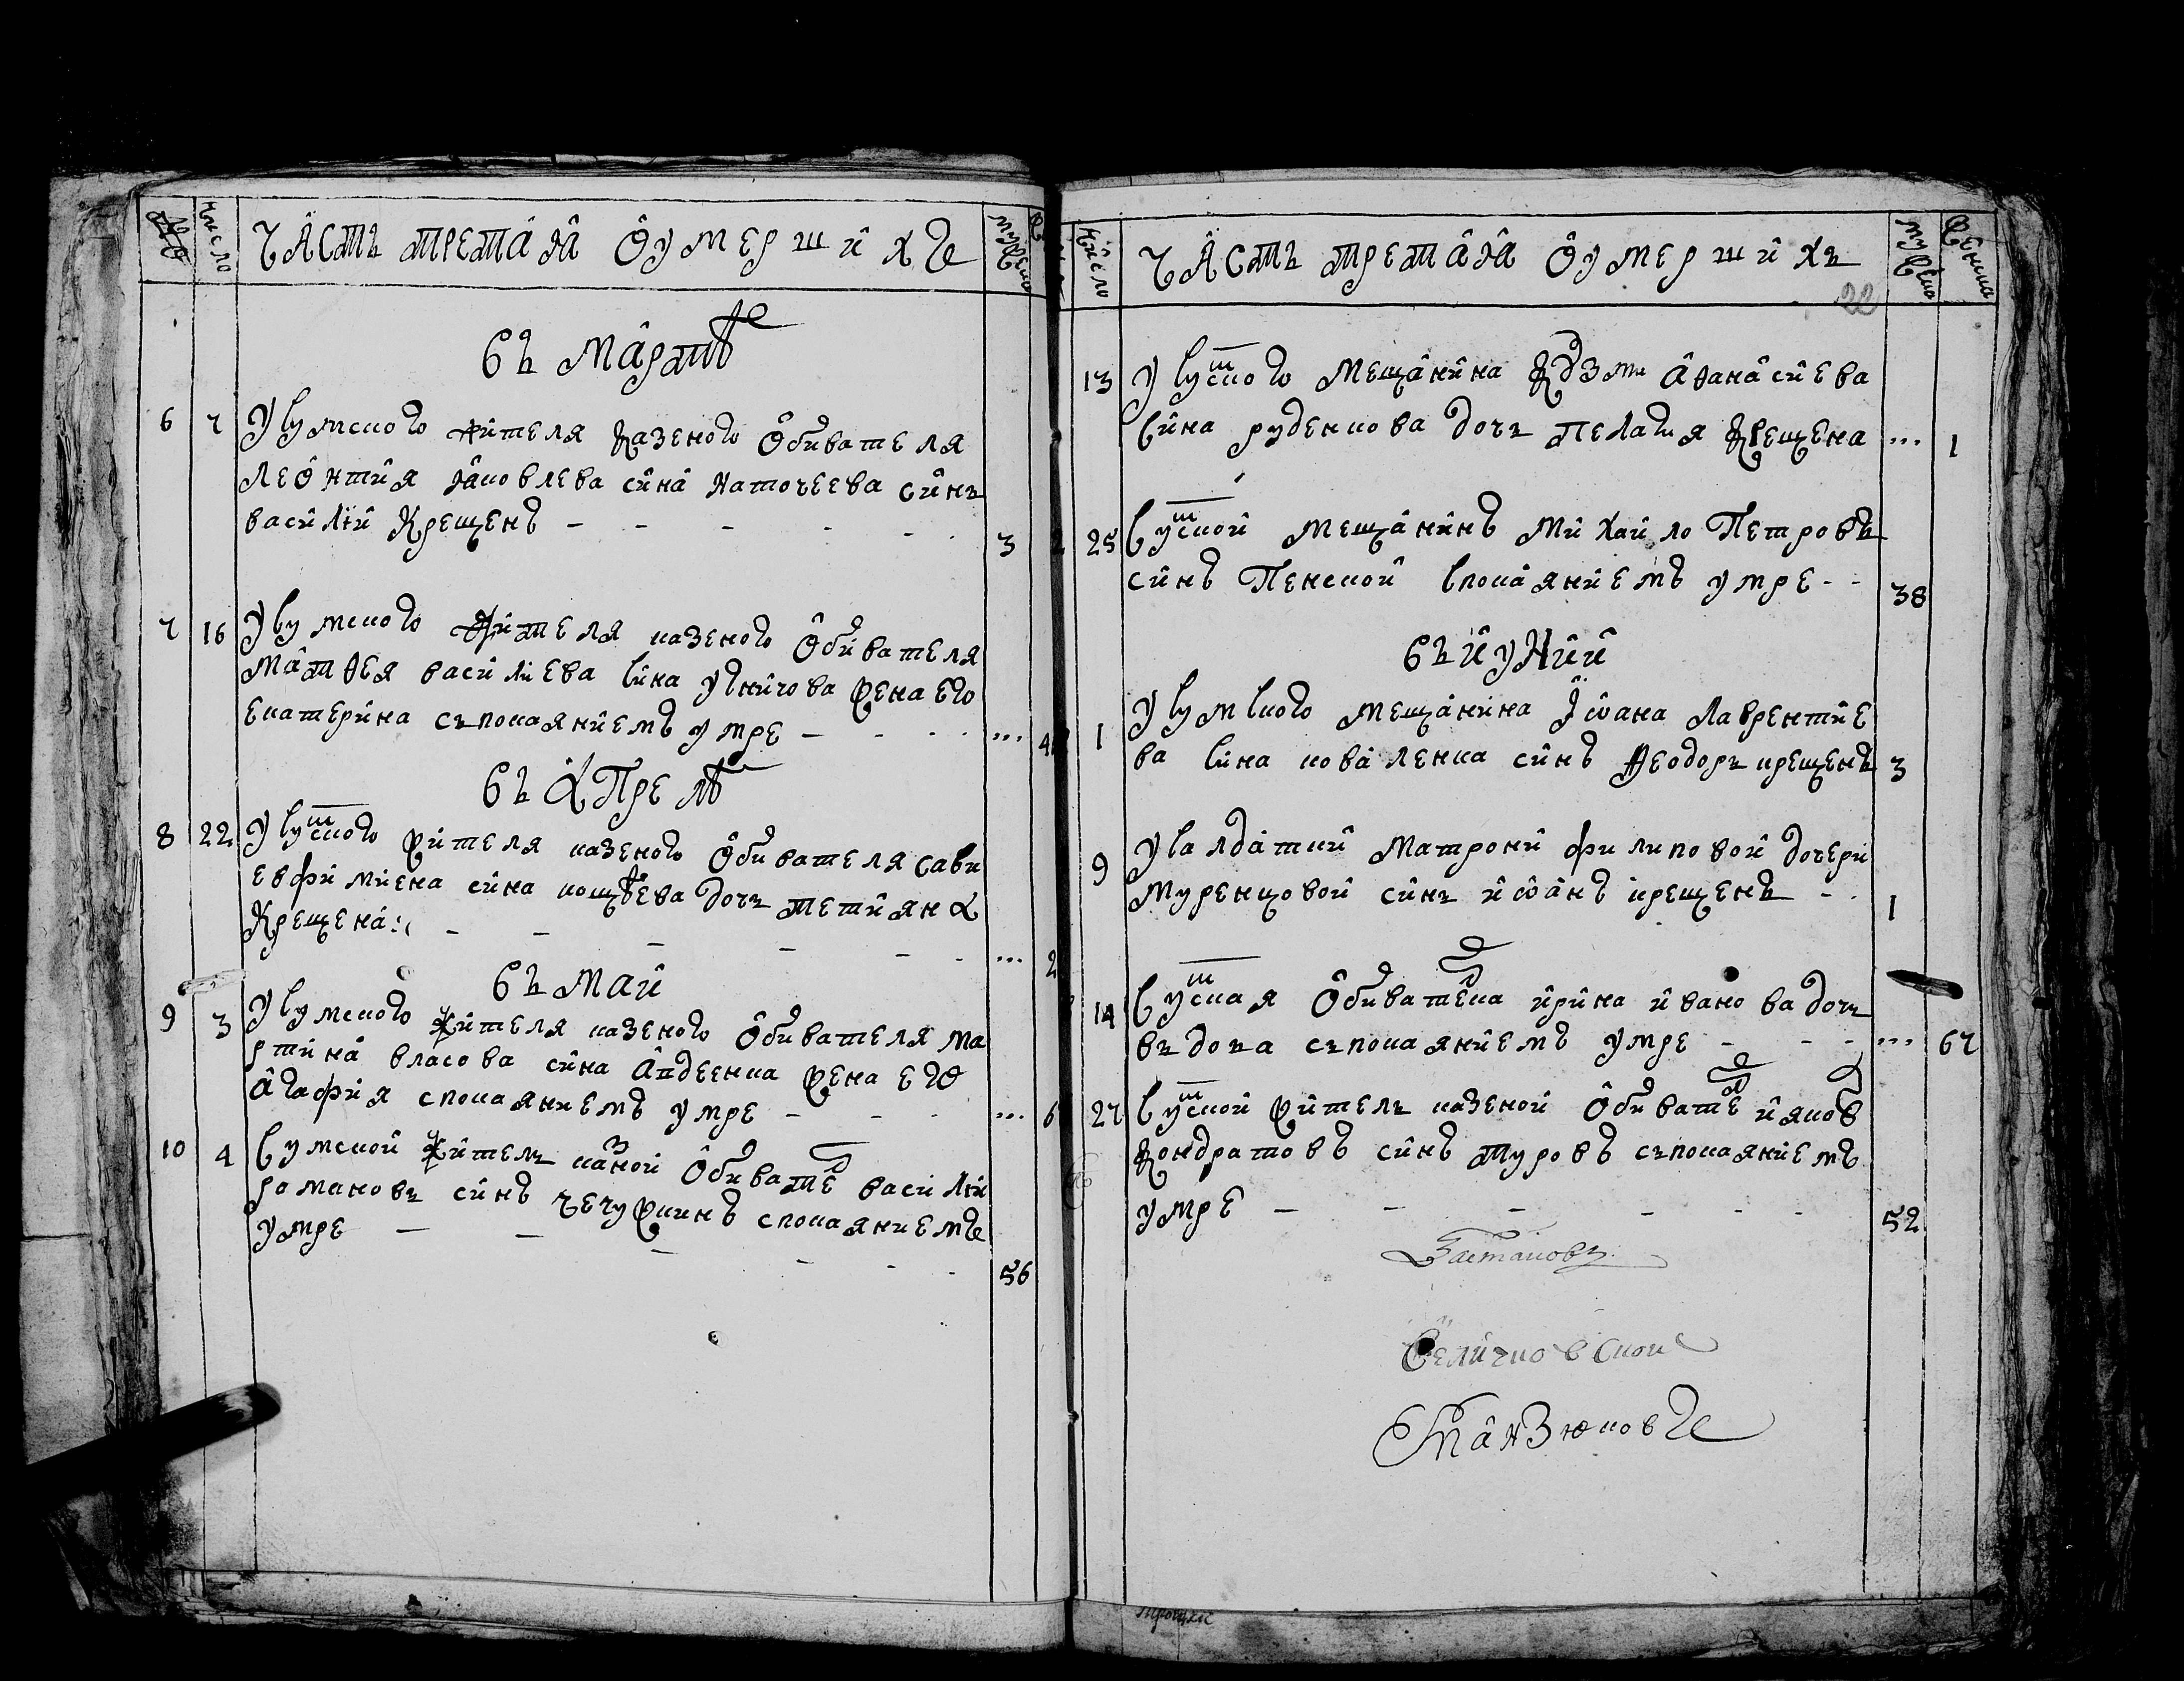 № число часть третая оумерших муж
въ мартѣ
6 7 У сумского жителя казеного обивателя
леонтия яковлева сина синъ
василий крещенъ - - - - - 3
7 16 У сумского жителя казеного обивателя
матѳея василиева сина жена его
екатерина съпокаяниемъ умре - - - - ... 4
въ апрелѣ
8 22 У сумского жителя казеного обивателя сави
евфимиева сина кощѣева дочь тетияна
крещена - - - - - - ... 2
въ май
9 3 У сумского жителя казеного обивателя ма
ртина власова сина авдеенка жена его
агафия спокаяниемъ умре - - - ... 6
10 4 Сумской житель казной обивате василий
романовъ синъ чечуткинъ спокаяниемъ
умре - - - - - - 56
число часть третая оумершихъ муже женска
22
13 У сумского мещанина кузми аѳанасиева
сина руденкова дочь пелагия крещена ... 1
25 Сумской мещанинъ михайло петровъ
синъ пенской спокаяниемъ умре - - 38
въ иуний
1 У сумского мещанина иоана лаврентие
ва сина коваленка синъ ѳеодоръ крещенъ 3
9 У салдатки матрони филиповой дочери
муренцовой синъ иоанъ крещенъ - - 1
14 Сумская обиватека ирина иванова дочь
въдова съпокаяниемъ умре - - - ... 67
27 Сумской житель казеной обивате ияков
кондратовъ синъ туровъ съпокаяниемъ
умре - - - - - - 52